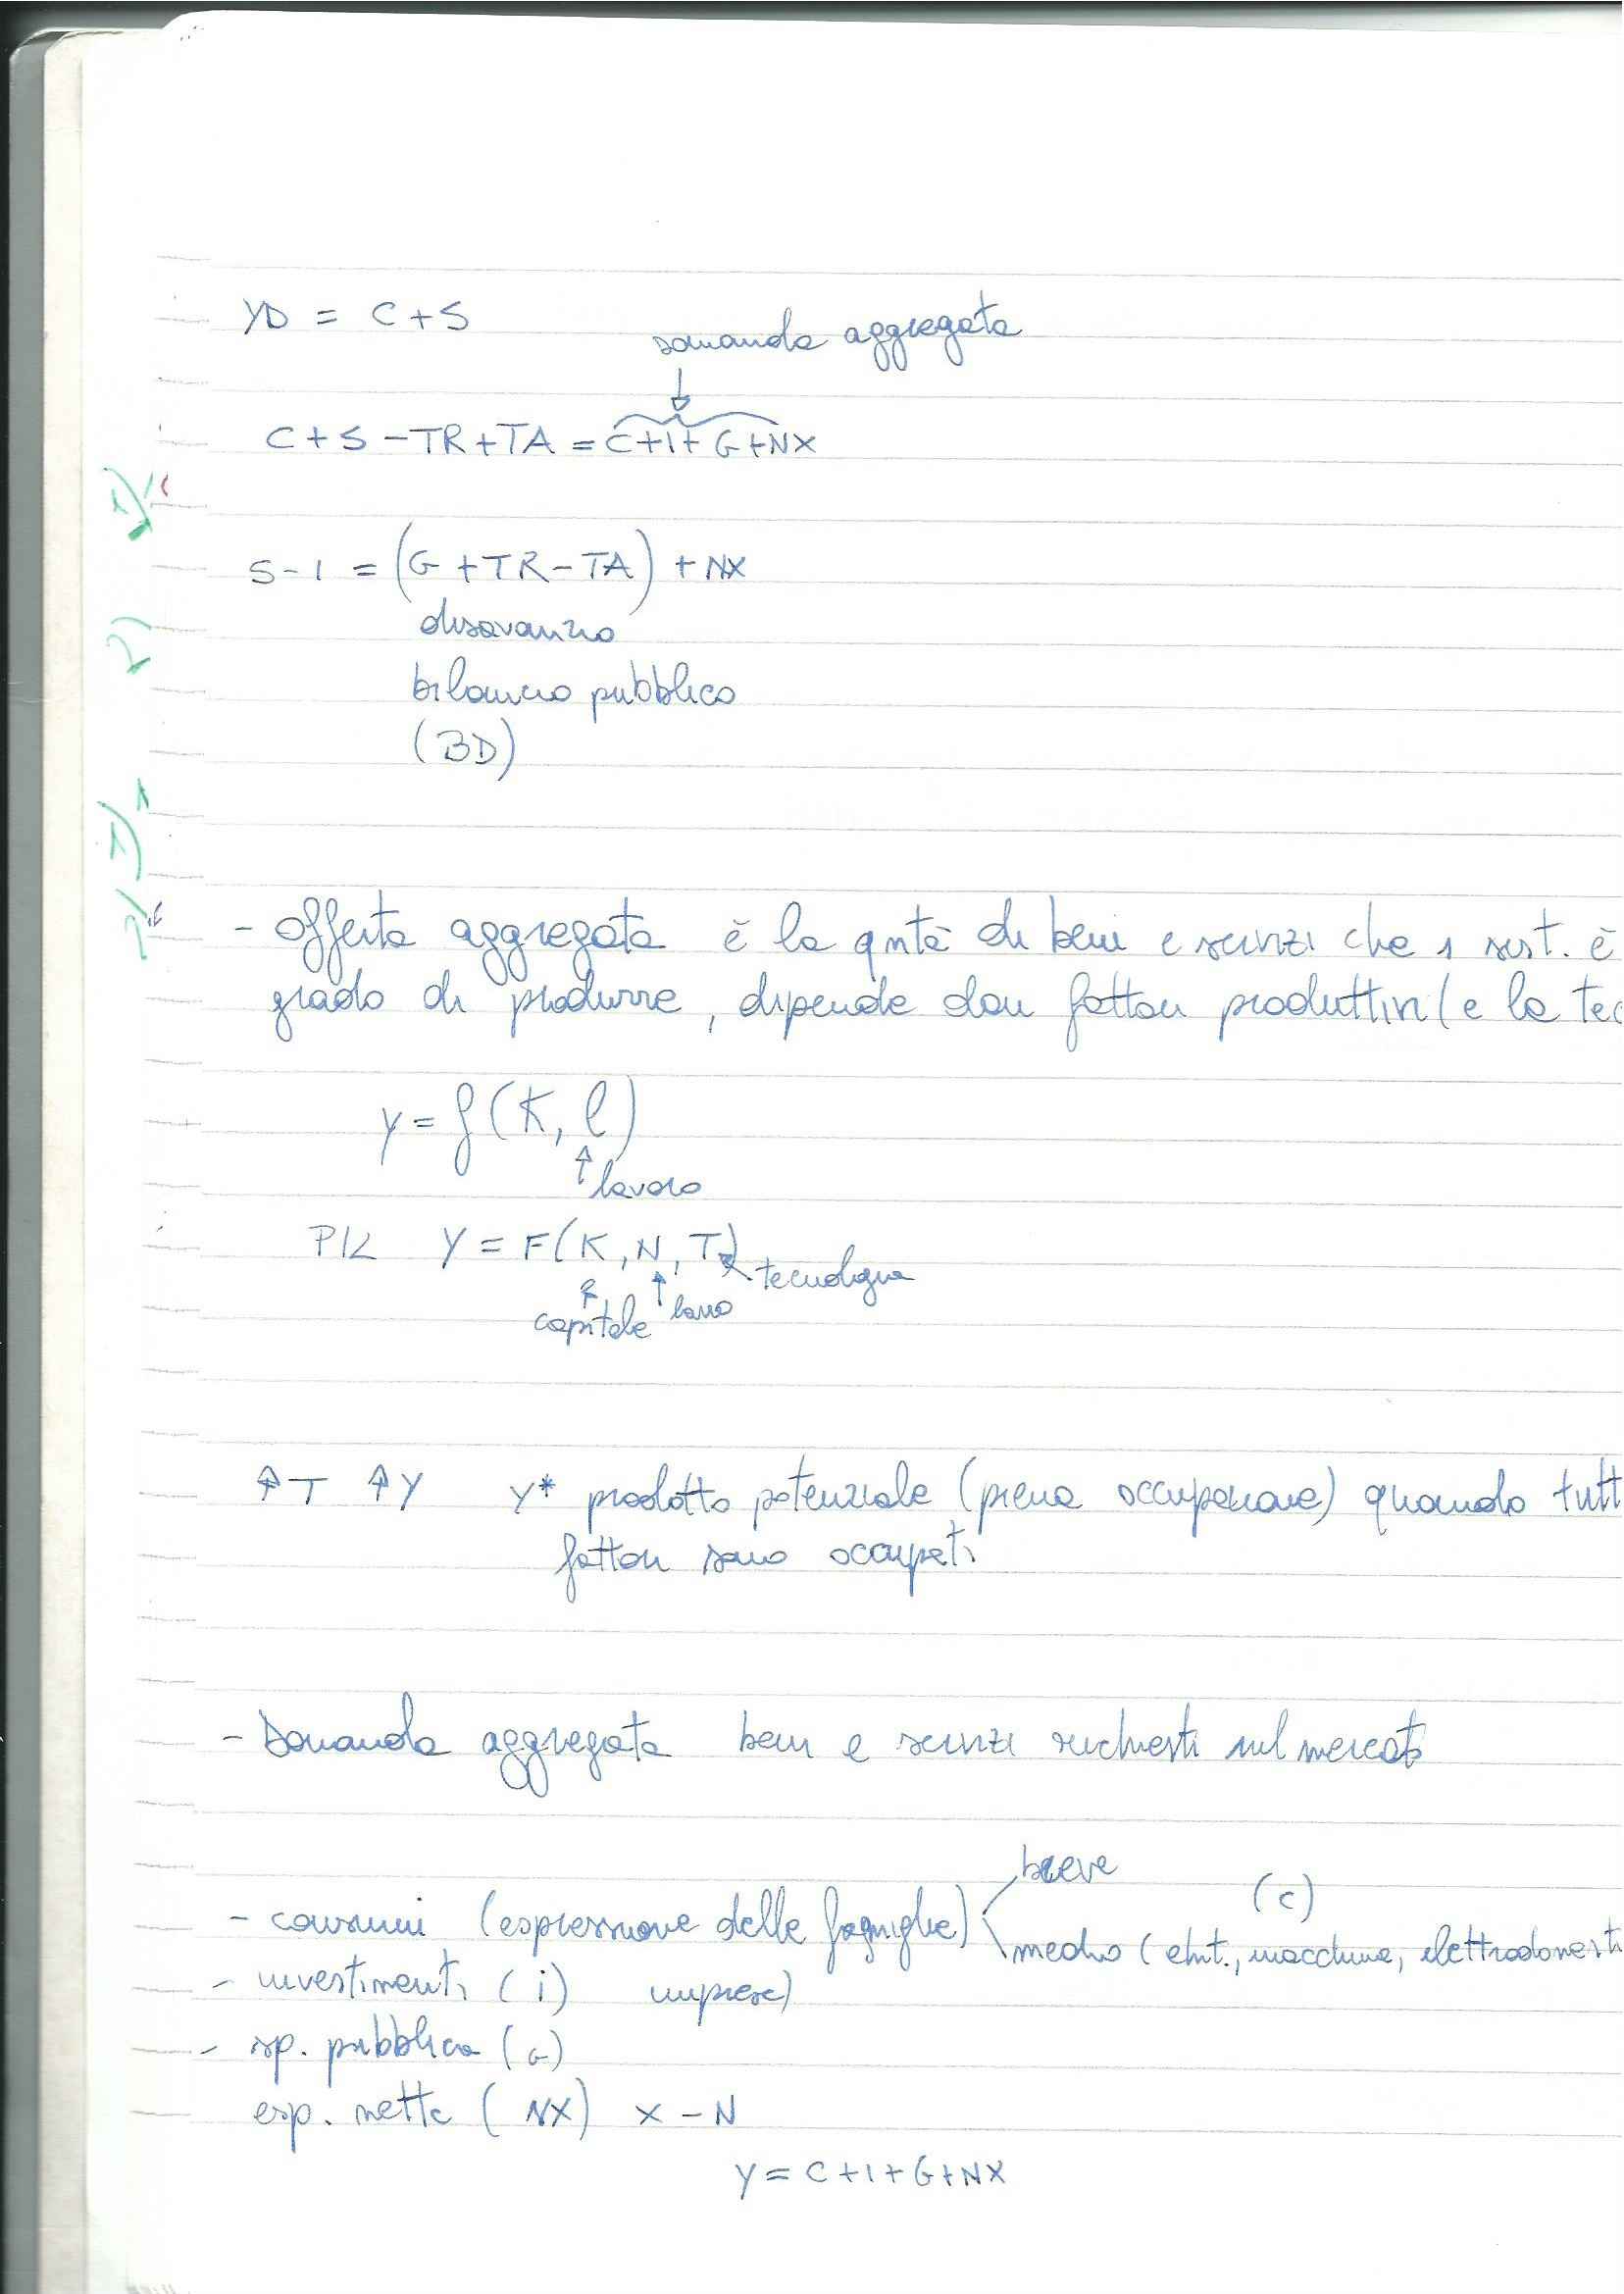 YD = C+S
domanda aggregata
↓
C+S-TR+TA = C+I+G+NX
S-I = (G+TR-TA) + NX
disavanzo
bilancio pubblico
(BD)
- Offerta aggregata è la qntà di beni e servizi che 1 sist. è
grado di produrre, dipende dai fattori produttivi (e la tec
y = f(K, l)
↑ lavoro
PIL Y = F(K, N, T) tecnologia
capitale lavoro
↑T ↑Y Y* prodotto potenziale (piena occupazione) quando tutt
fattori sono occupati
- Domanda aggregata beni e servizi richiesti sul mercato
breve
- consumi (espressione delle famiglie) (c)
medio (, macchine, elettrodomesti
- investimenti (i) imprese)
- sp. pubblica (G)
esp. nette (NX) X-N
Y = C+I+G+NX